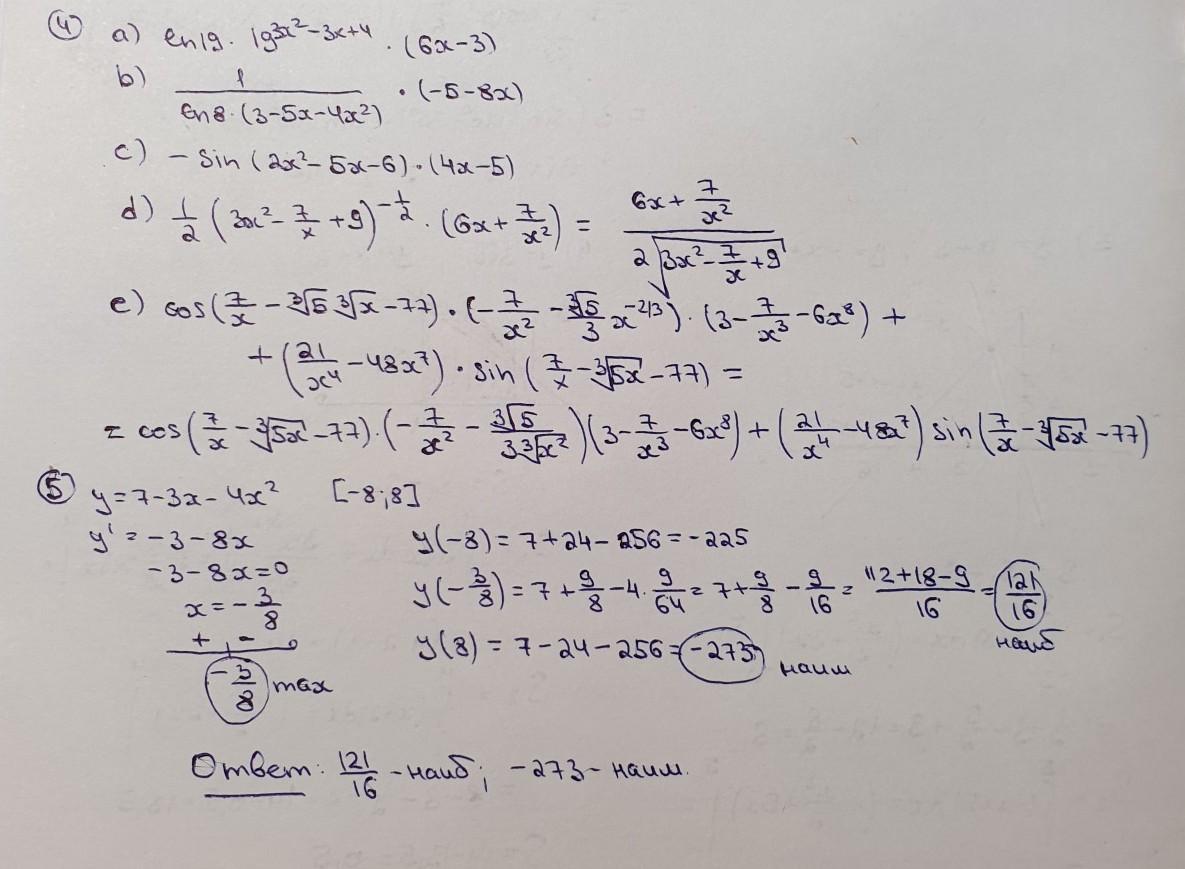 ④ a) ln19 · 19^(3x²-3x+4) · (6x-3)
b) 1/(ln8 · (3-5x-4x²)) · (-5-8x)
c) - sin(2x²-5x-6) · (4x-5)
d) 1/2 (3x² - 7/x + 9)^(-1/2) · (6x + 7/x²) = (6x + 7/x²)/(2√(3x² - 7/x + 9))
e) cos(7/x - ∛5 ∛x - 77) · (-7/x² - ∛5/3 x^(-2/3)) · (3 - 7/x³ - 6x⁸) +
+ (21/x⁴ - 48x⁷) · sin(7/x - ∛5x - 77) =
= cos(7/x - ∛5x - 77) · (-7/x² - ∛5/(3∛x²)) (3 - 7/x³ - 6x⁸) + (21/x⁴ - 48x⁷) sin(7/x - ∛5x - 77)
⑤ y = 7-3x-4x² [-8;8]
y' = -3-8x
-3-8x=0
x = -3/8
+ -
-3/8 max
y(-8) = 7+24-256 = -225
y(-3/8) = 7 + 9/8 - 4 · 9/64 = 7 + 9/8 - 9/16 = (112+18-9)/16 = 121/16
наиб
y(8) = 7-24-256 = -273 наим
Ответ: 121/16 - наиб; -273 - наим.